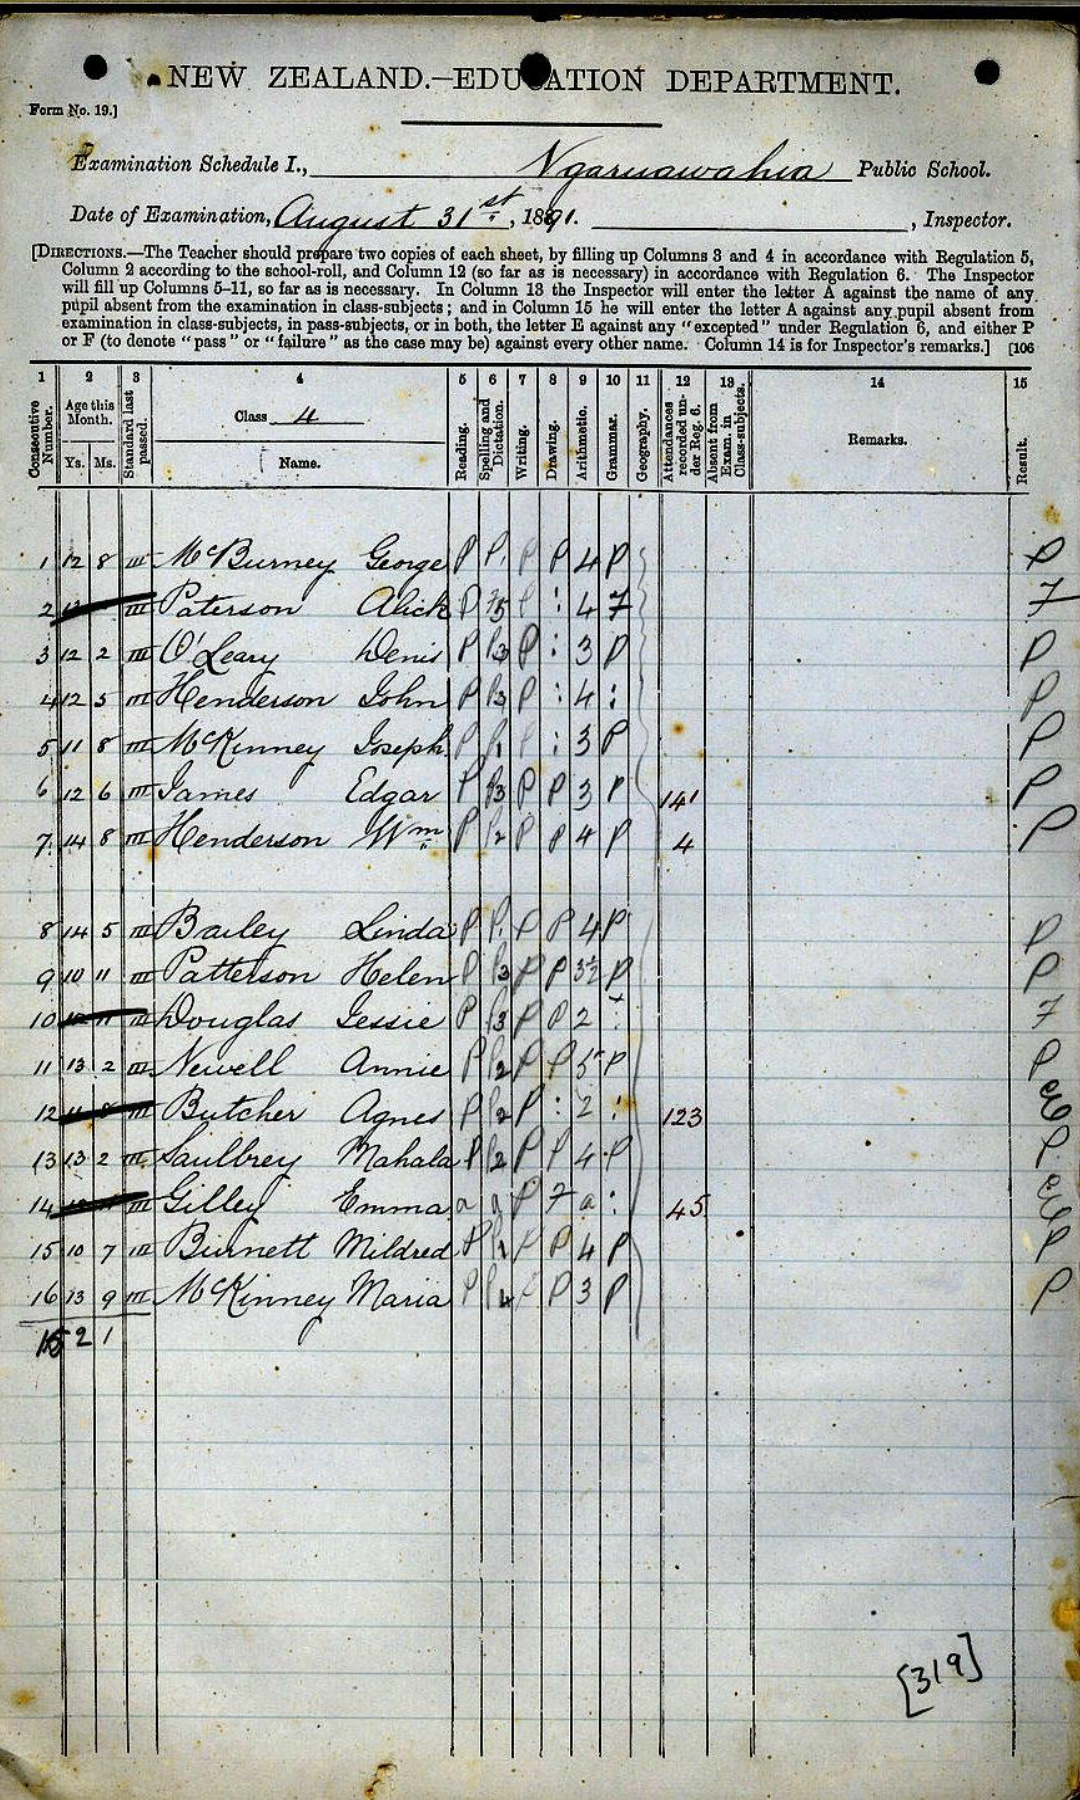 NEW ZEALAND.—EDUCATION DEPARTMENT.
Form No. 19.]
Examination Schedule I., Ngaruawahia Public School.
Date of Examination, August 31st, 1891. , Inspector.
[DIRECTIONS.—The Teacher should prepare two copies of each sheet, by filling up Columns 3 and 4 in accordance with Regulation 5,
Column 2 according to the school-roll, and Column 12 (so far as is necessary) in accordance with Regulation 6. The Inspector
will fill up Columns 5–11, so far as is necessary. In Column 13 the Inspector will enter the letter A against the name of any
pupil absent from the examination in class-subjects; and in Column 15 he will enter the letter A against any pupil absent from
examination in class-subjects, in pass-subjects, or in both, the letter E against any "excepted" under Regulation 6, and either P
or F (to denote "pass" or "failure" as the case may be) against every other name. Column 14 is for Inspector's remarks.] [106
1 2 3 4 5 6 7 8 9 10 11 12 13 14 15
Consecutive Number. Age this Month. Ys. Ms. Standard last passed. Class 4 Name. Reading. Spelling and Dictation. Writing. Drawing. Arithmetic. Grammar. Geography. Attendances recorded under Reg. 6. Absent from Exam. in Class-subjects. Remarks. Result.
1 12 8 III McBurney George P P1 P P 4 P P
2 III Paterson Alick P P : 4 F F
3 12 2 III O'Leary Denis P P3 P : 3 P P
4 12 5 III Henderson John P P3 P : 4 : P
5 11 8 III McKinney Joseph P P1 P : 3 P P
6 12 6 III James Edgar P P3 P P 3 P 141 P
7 14 8 III Henderson Wm P P2 P P 4 P 4 P
8 14 5 III Bailey Linda P P1 P P 4 P P
9 10 11 III Patterson Helen P P3 P P 3½ P P
10 III Douglas Jessie P P3 P P 2 : F
11 13 2 III Newell Annie P P2 P P 5 P P
12 III Butcher Agnes P P2 P : 2 : 123
13 13 2 III Saulbrey Mahala P P2 P P 4 P P
14 III Gilley Emma a a P F a : 45
15 10 7 III Burnett Mildred P P1 P P 4 P P
16 13 9 III McKinney Maria P P4 P P 3 P P
2 1
[319]